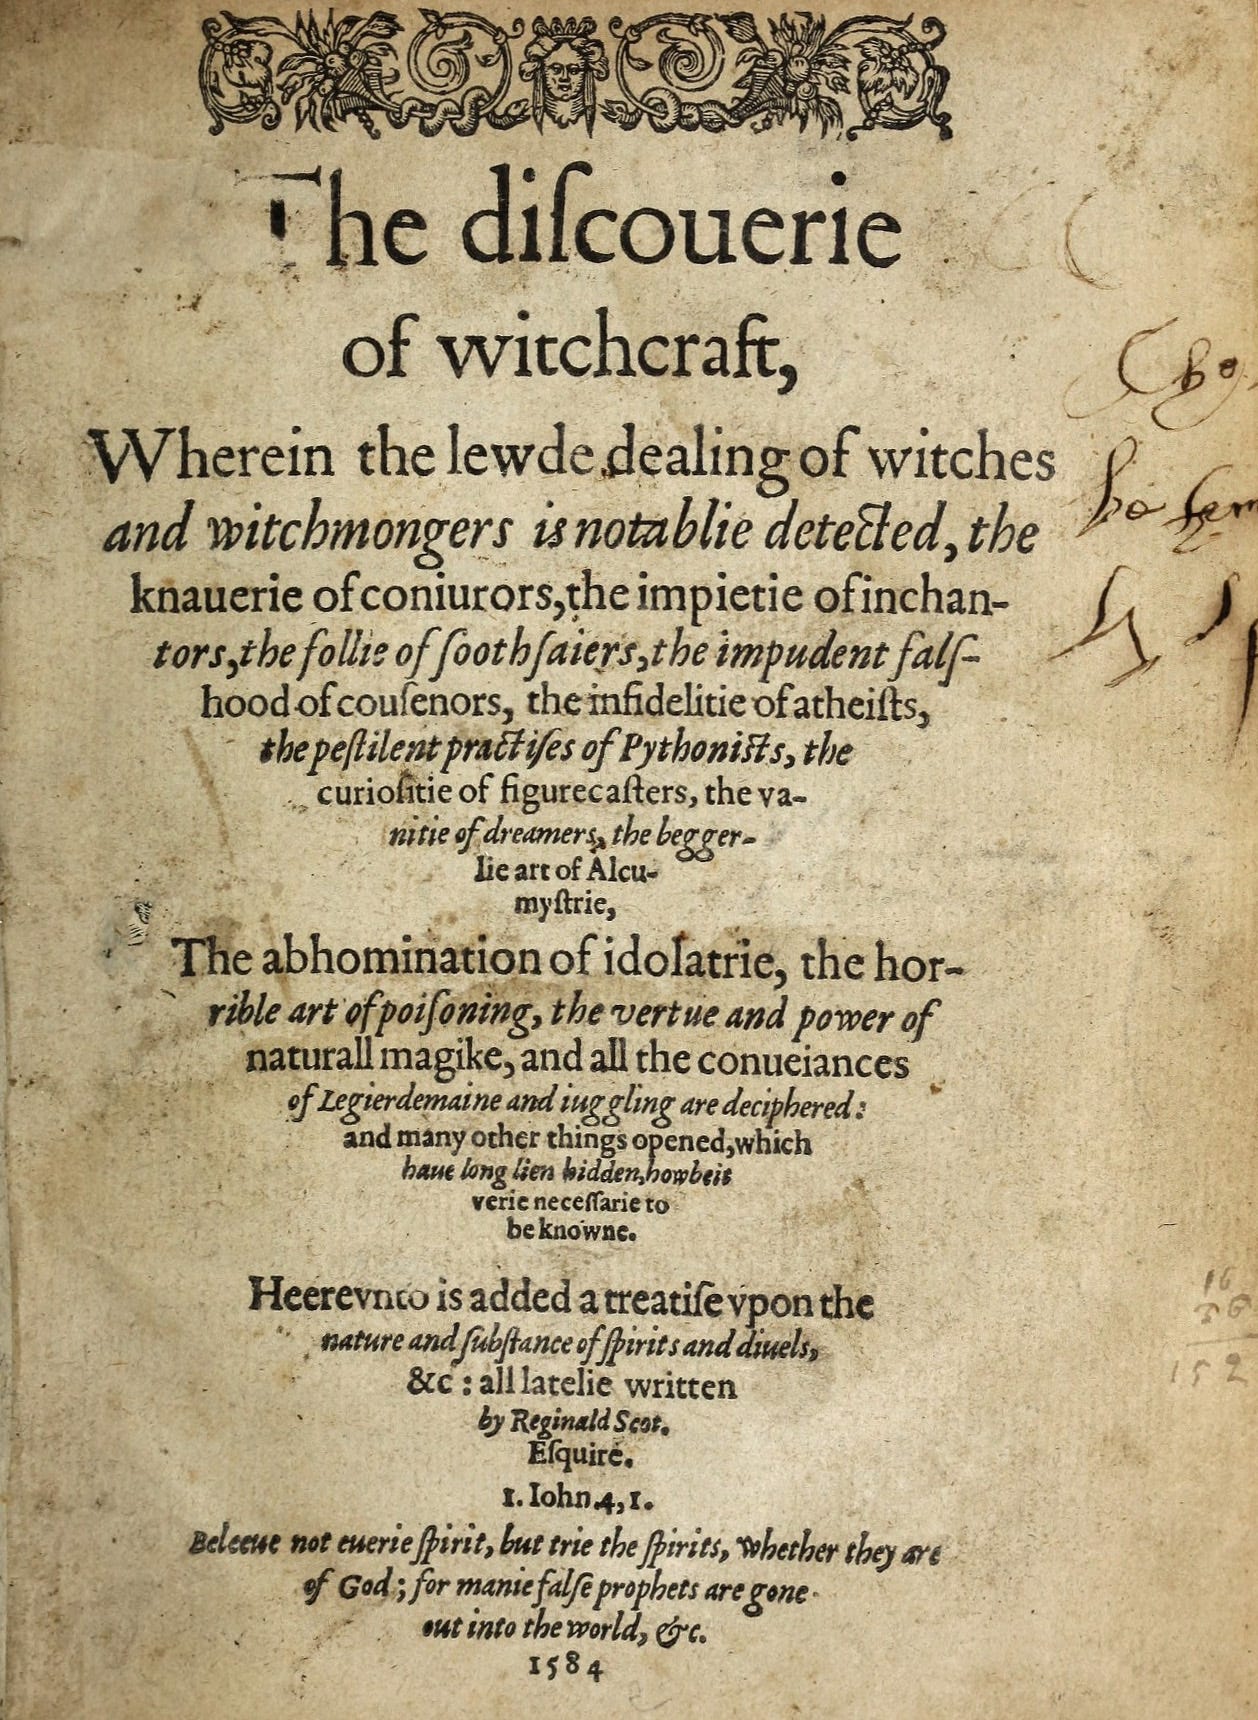 The diſcouerie
of witchcraft,
Wherein the lewde dealing of witches
and witchmongers is notablie detected, the
knauerie of coniurors, the impietie of inchan-
tors, the follie of ſoothſaiers, the impudent falſ-
hood of couſenors, the infidelitie of atheiſts,
the peſtilent practiſes of Pythoniſts, the
curioſitie of figurecaſters, the va-
nitie of dreamers, the begger-
lie art of Alcu-
myſtrie,
The abhomination of idolatrie, the hor-
rible art of poiſoning, the vertue and power of
naturall magike, and all the conueiances
of Legierdemaine and iuggling are deciphered:
and many other things opened, which
haue long lien hidden, howbeit
verie neceſſarie to
be knowne.
Heerevnto is added a treatiſe vpon the
nature and ſubſtance of ſpirits and diuels,
&c: all latelie written
by Reginald Scot.
Eſquire.
1. Iohn.4,1.
Beleeue not euerie ſpirit, but trie the ſpirits, whether they are
of God; for manie falſe prophets are gone
out into the world, &c.
1584
152